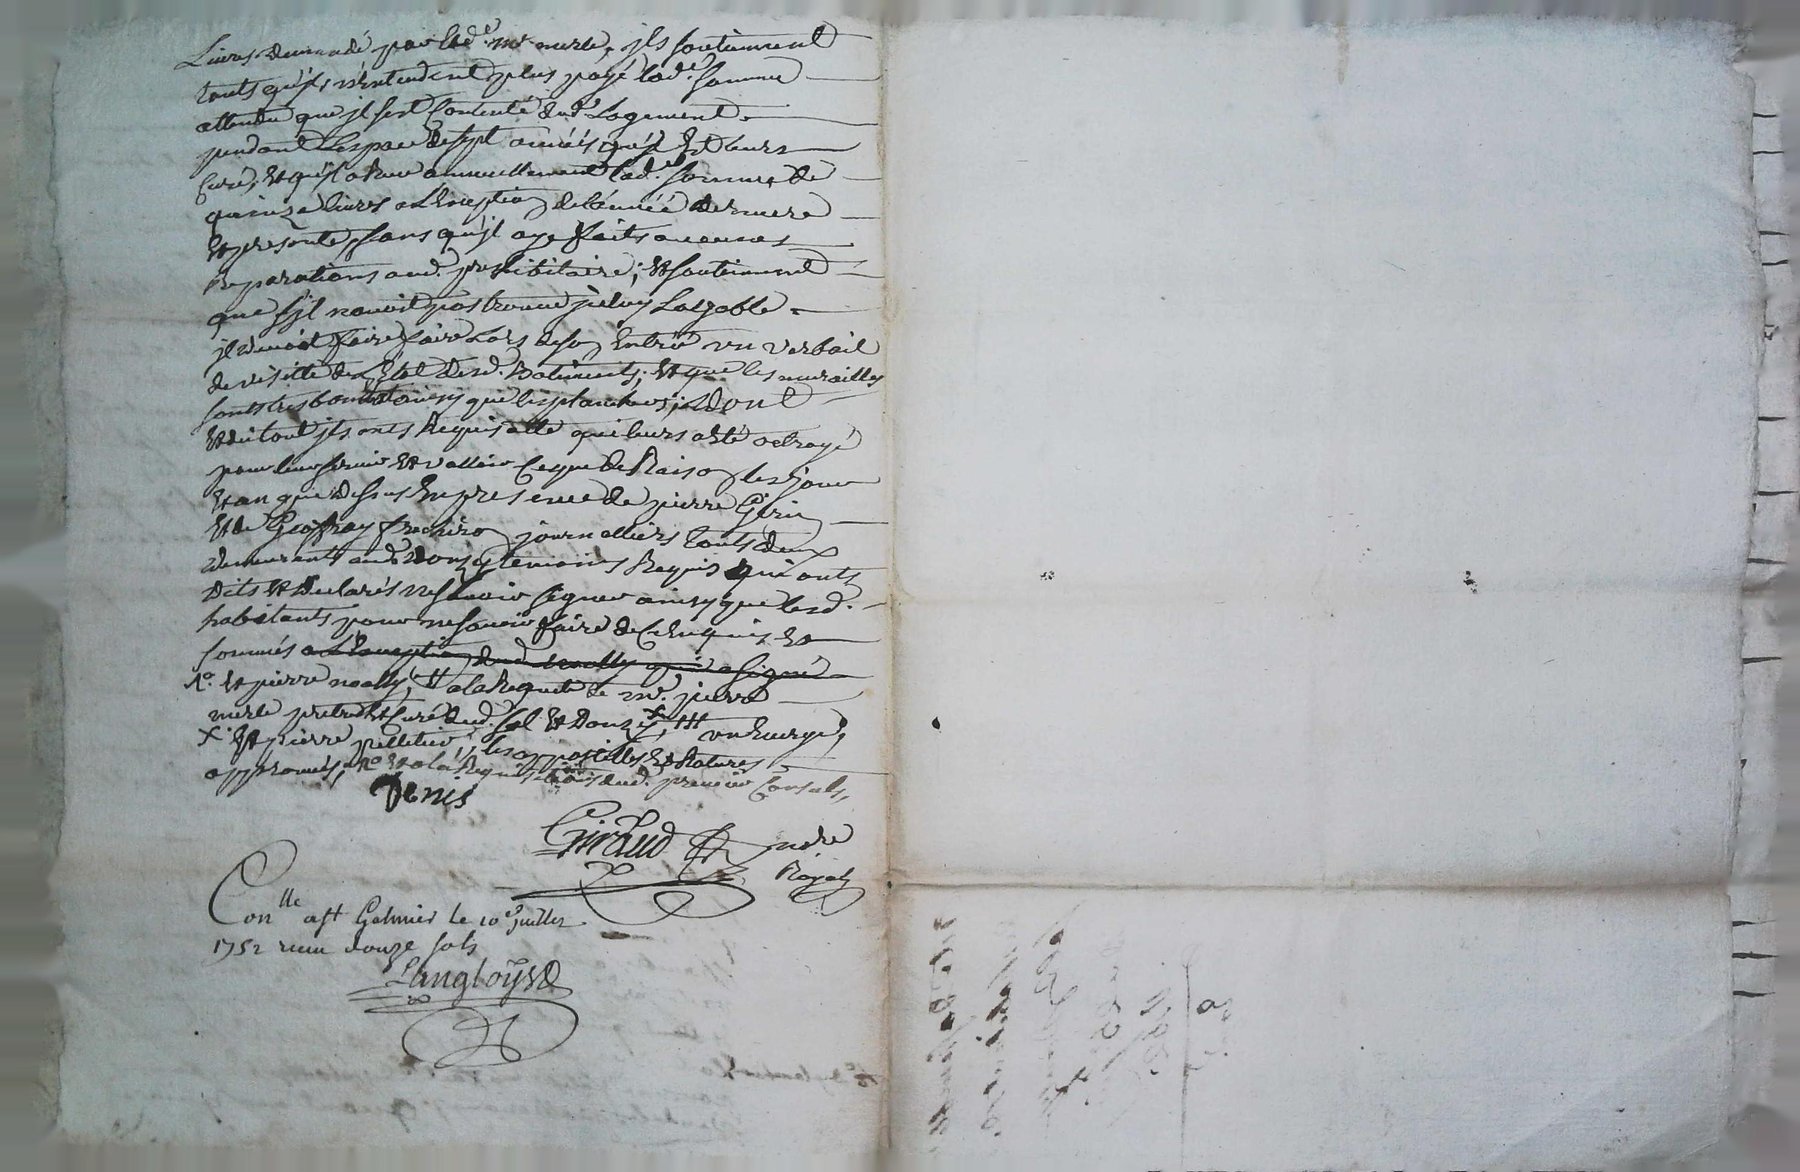 Livres demandé par led.t mr merle, jls soutiennent
touts qu'jls n'entendent plus payé lad.e somme
attendu que jl sest Contenté dud.t Logement
pendant Lespace de sept années qu'jl Est leurs
Curé, Et qu'jl a Receu annuellement lad.e somme de
quinze livres a L'exception de l'année derniere
Et presente, sans qu'jl aye faits aucunes
Reparations aud. presbitaire; Et soutiennent
que s'jl n'avoit pas trouvé jceluy Logeable
jl devoit faire faire Lors de son Entrée un verbail
de visitte de L'Etat desd. Batiments, Et que les murailles
sonts tres bonnes ainsy que les planchers; dont
Et du tout jls onts Requis acte qui leurs a Eté octroyé
pour leur servir Et valloir Ce que de Raison les jour
Et an que dessus En presence de pierre Girin
Et de Geoffray frechiro journalliers touts deux
demeurants aud. Donzy temoins Requis qui onts
dits Et declarés ne sçavoir signer ainsy que lesd.
habitants pour ne sçavoir faire de Ce Enquis Et
sommés a L'exception dud. noally qui a signé
Et pierre noally, Et a la Requete de mr. pierre
merle pretre Et Curé dud. sal Et Donzy, un Envoye,
x Et pierre pelletier, les appostilles Et Ratures
approuvés, Et a la Requisitions dud. premier Consuls,
Denis
Giraud
Andre
Royet
Con.lle a st Galmier le 10e juillet
1752 receu douze sols
Langloys